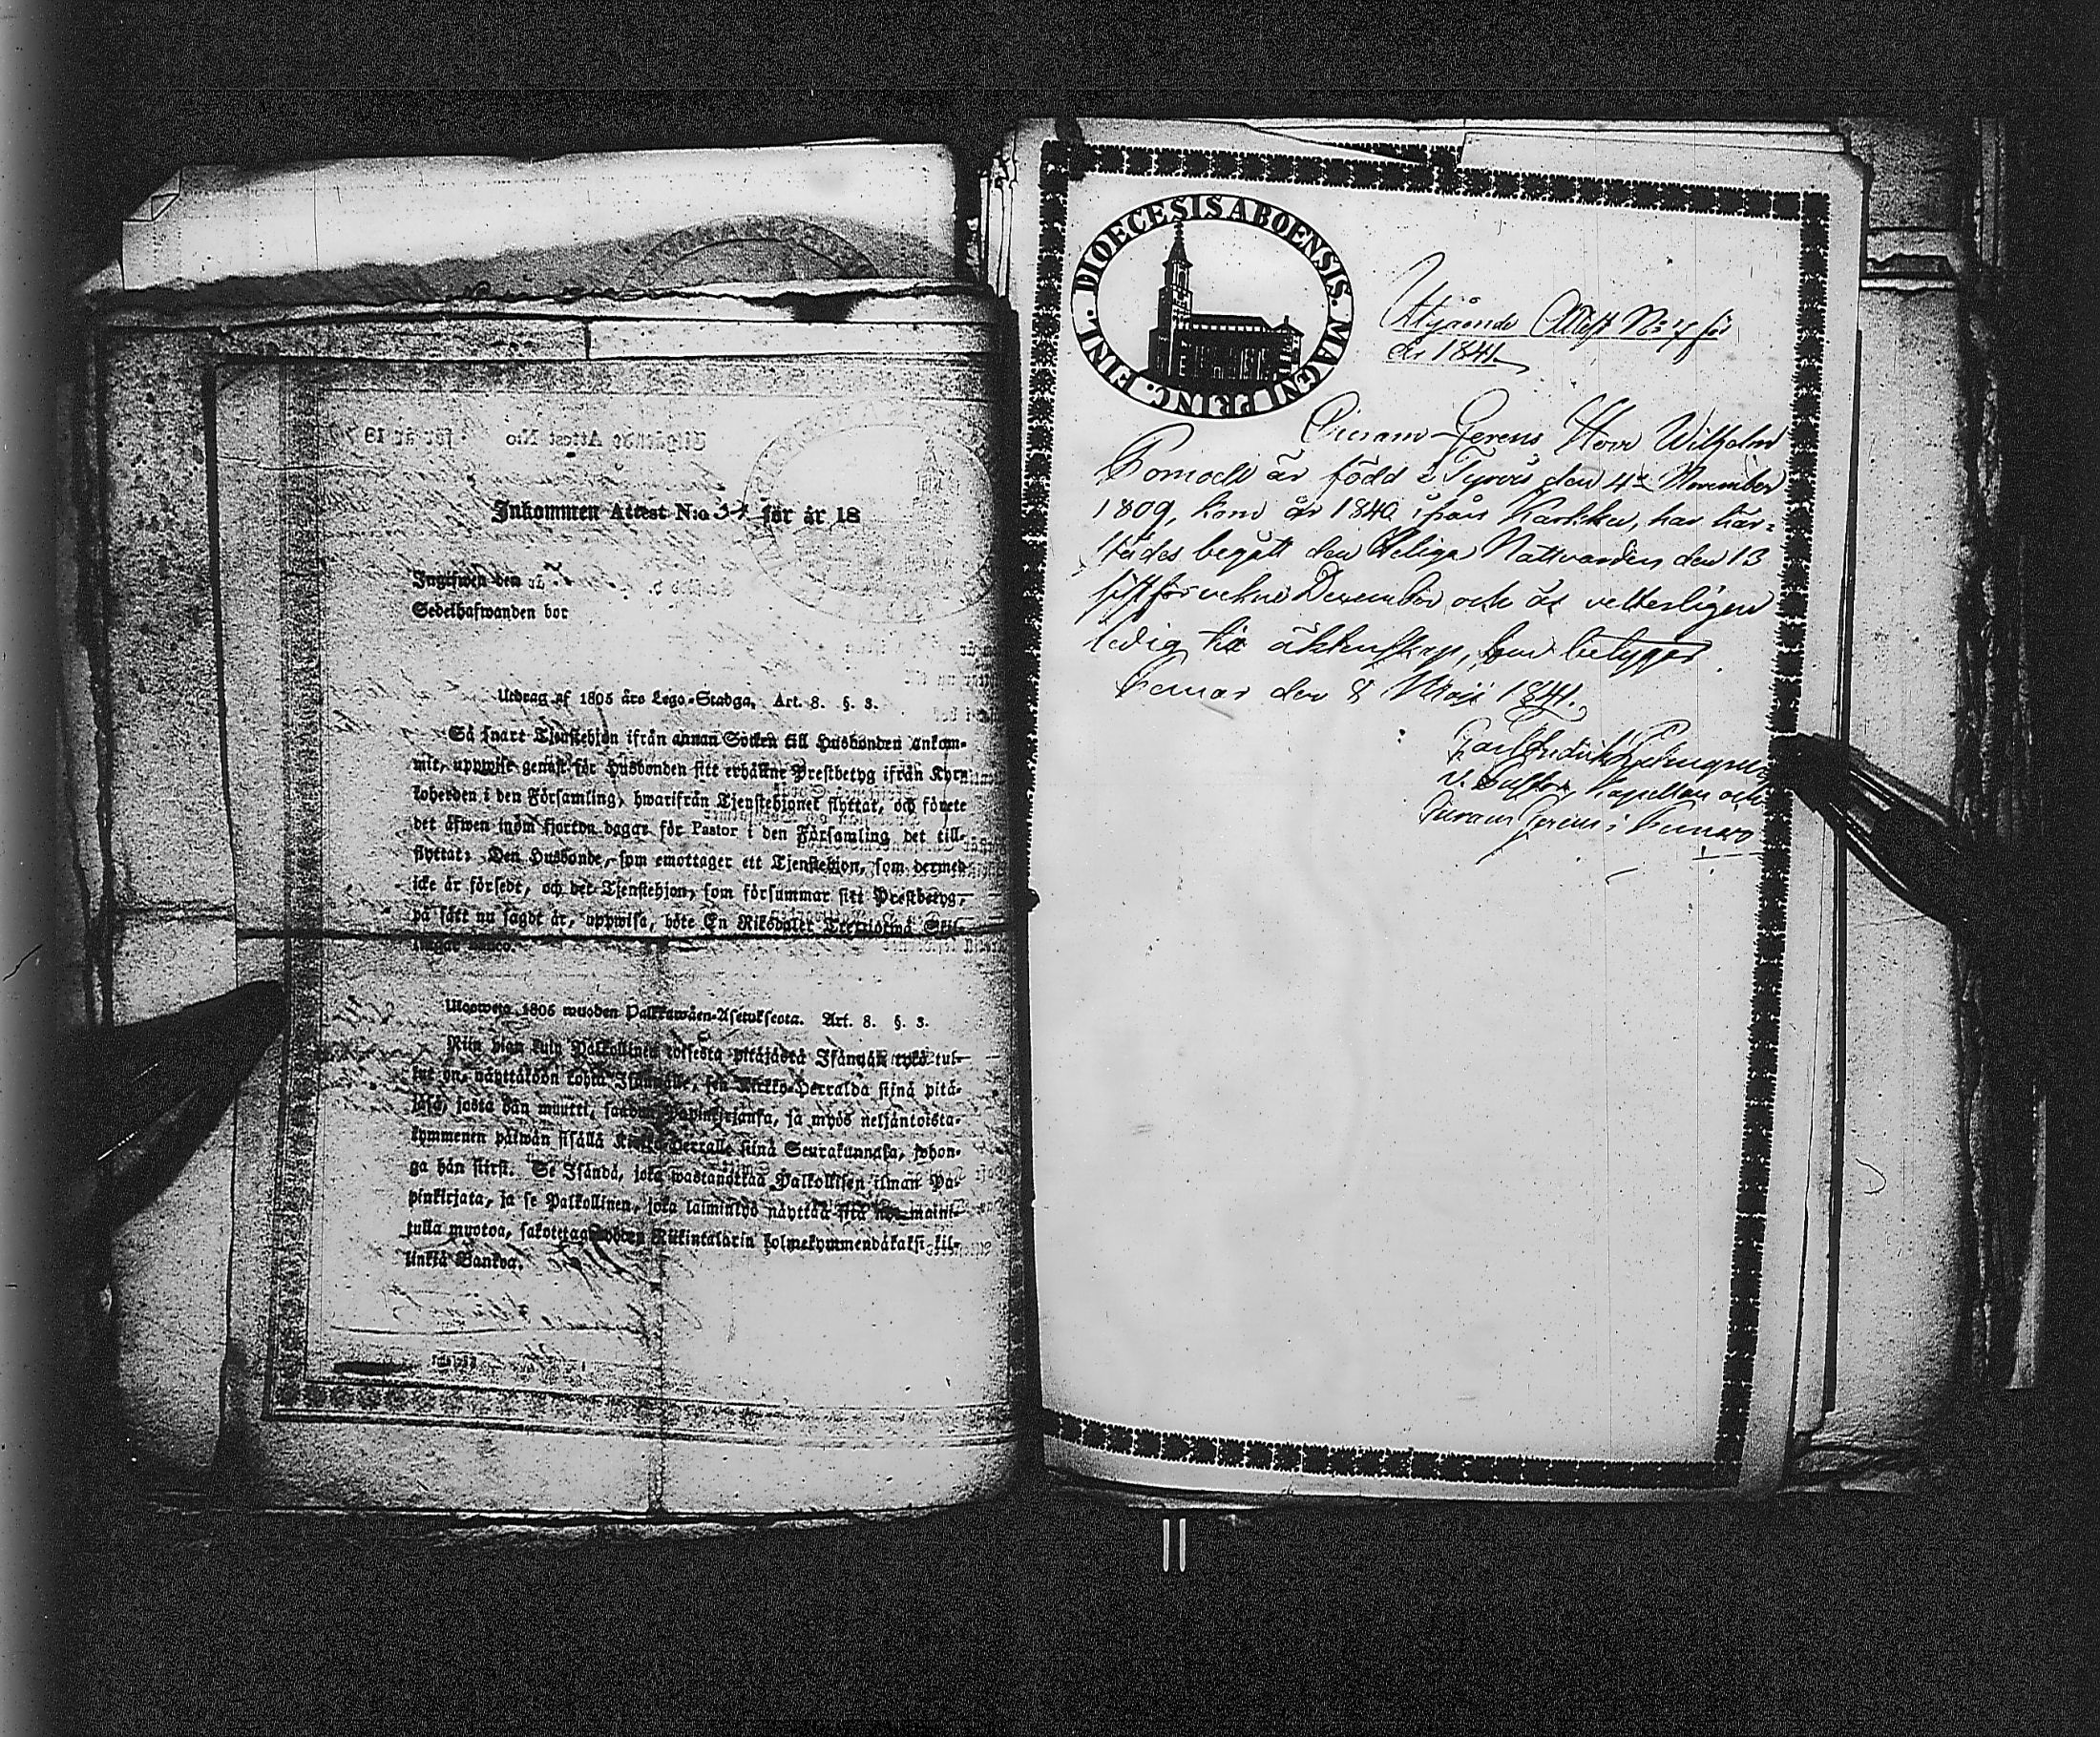 Inkommen Attest N:o 37 för år 18
Ingifwen den
Sedelhafwanden bor
Utdrag af 1805 års Lego-Stadga. Art. 8. §. 3.
Så snart Tjenstehjon ifrån annan Socken till Husbonden ankom-
mit, uppwise genast för Husbonden sitt erhållne Prestbetyg ifrån Kyrk
loherden i den Församling, hwarifrån Tjenstehjonet flyttat, och förete
det äfwen inom fjorton dagar för Pastor i den Församling det till-
flyttat. Den Husbonde, som emottager ett Tjenstehjon, som dermed
icke är försedt, och det Tjenstehjon, som försummar sitt Prestbetyg,
på sätt nu sagdt är, uppwisa, böte En Riksdaler Trettiotwå Skil-
lingar Banco.
Ulosweto 1805 wuoden Palkkawäen-Asetuksesta. Art. 8. §. 3.
Niin pian kuin Palkollinen toisesta pitäjästä Isännän tykö tul-
lut on, näyttäköön kohta Isännälle, sen Kirkko-Herralda siinä pitä-
jäsä, josta hän muutti, saadun Papinkirjansa, ja myös neljäntoista-
kymmenen päiwän sisällä Kirkko-Herralle siinä Seurakunnasa, johon-
ga hän siirsi. Se Isändä, joka wastanottaa Palkollisen ilman Pa-
pinkirjata, ja se Palkollinen, joka laiminlyö näyttää sitä nyt maini-
tulla muotoa, sakotetaan yhden Riikintalarin kolmekymmendäkaksi kil-
linkiä Bankoa.
DIOECESIS ABOENSIS. MAGNI PRINC. FINL.
Utgående Attest No 4 för
år 1841.
Curam-Gerens Herr Wilhelm
är född i Tyrvis den 4de November
1809, kom år 1840 ifrån Karkku, har här-
städes begått den Heliga Nattvarden den 13
sistförvekne December och är vetterligen
ledig till äktenskap, som betygas.
den 8 Maji 1841.
Carl Fredrik
Kapellan och
Curam Gerens i